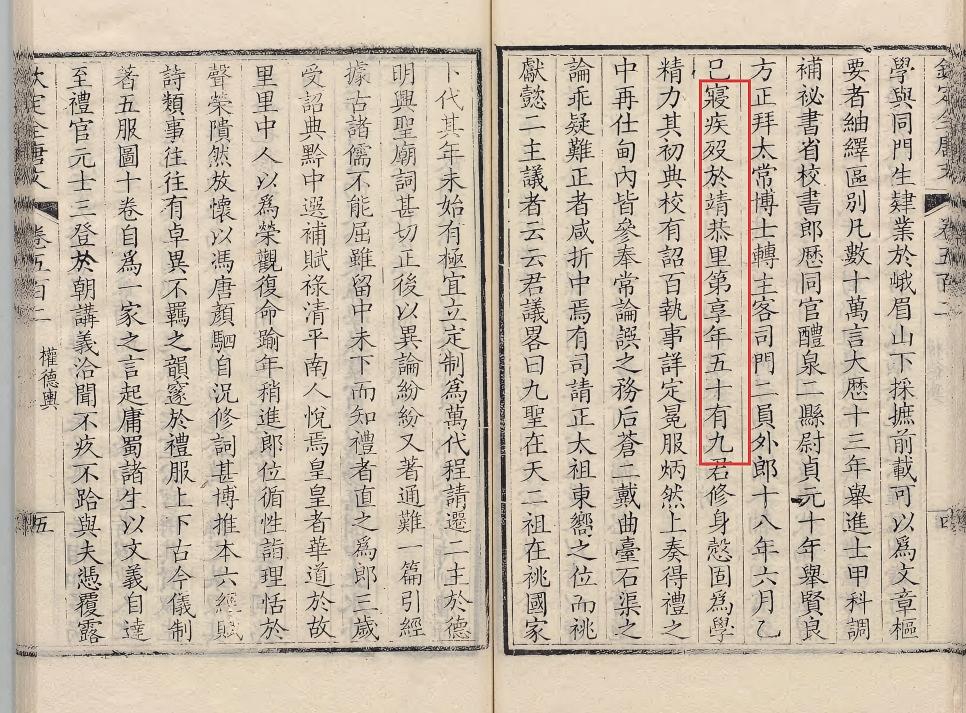 欽定全唐文 卷五百二 四
學與同門生肄業於峨眉山下採摭前載可以爲文章樞
要者紬繹區別凡數十萬言大歷十三年舉進士甲科調
補祕書省校書郎歷同官醴泉二縣尉貞元十年舉賢良
方正拜太常博士轉主客司門二員外郎十八年六月乙
巳寢疾歿於靖恭里第享年五十有九君修身慤固爲學
精力其初典校有詔百執事詳定冕服炳然上奏得禮之
中再仕甸內皆參奉常論譔之務后蒼二戴曲臺石渠之
論乖疑難正者咸折中焉有司請正太祖東嚮之位而祧
獻懿二主議者云云君議畧曰九聖在天二祖在祧國家
卜代其年未始有極宜立定制爲萬代程請遷二主於德
明興聖廟詞甚切正後以異論紛紛又著通難一篇引經
據古諸儒不能屈雖留中未下而知禮者直之爲郎三歲
受詔典黔中選補賦祿清平南人悅焉皇皇者華道於故
里里中人以爲榮觀復命踰年稍進郎位循性詣理恬於
聲榮隤然放懷以馮唐顏駟自況修詞甚博推本六經賦
詩類事往往有卓異不羈之韻窾於禮服上下古今儀制
著五服圖十卷自爲一家之言起庸蜀諸生以文義自達
至禮官元士三登於朝講義洽聞不疚不跲與夫憑覆露
欽定全唐文 卷五百二 權德輿 五